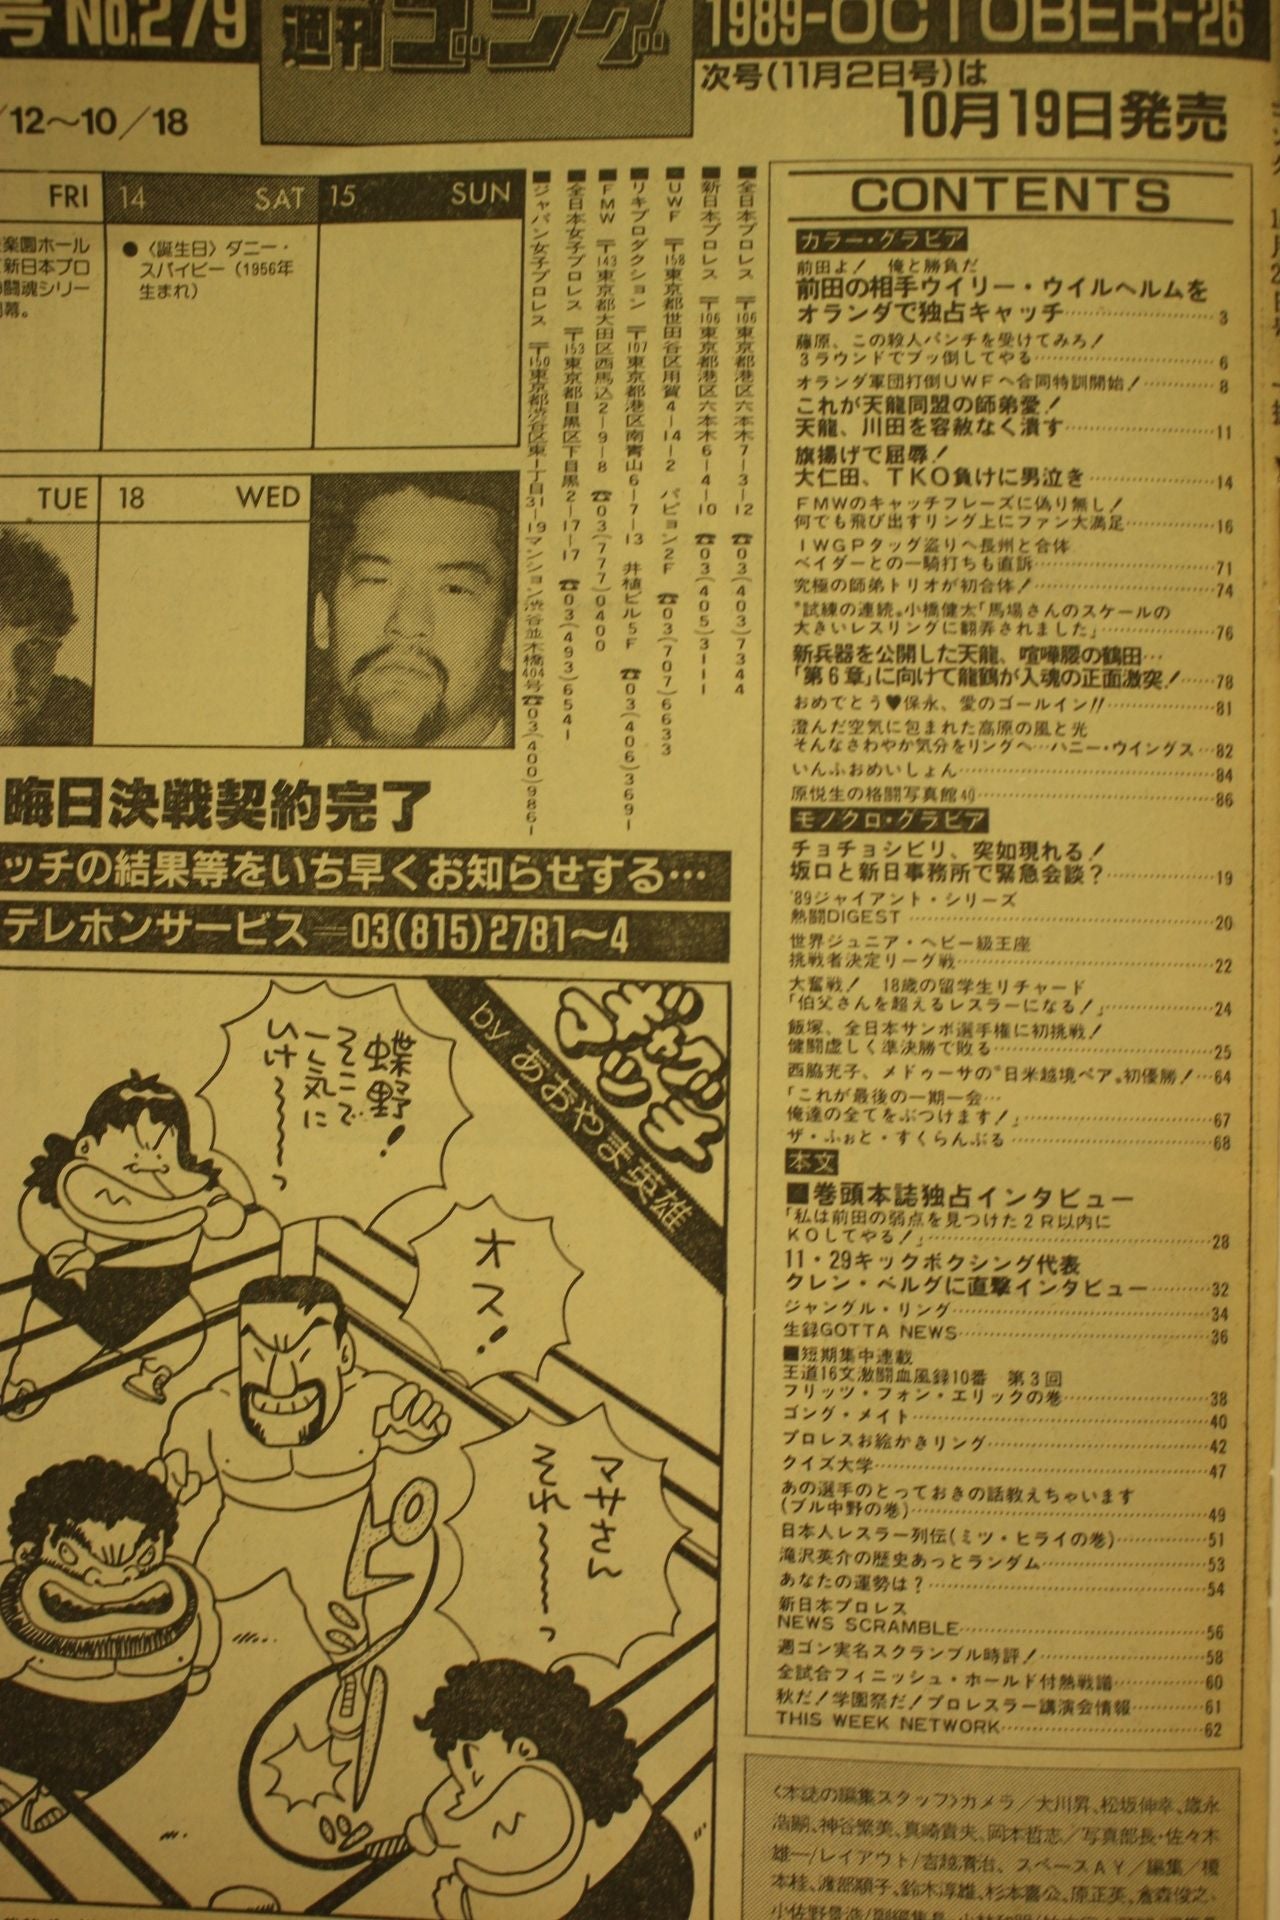 号 No.279
週刊ゴング
1989-OCTOBER-26
次号(11月2日号)は
10月19日発売
/12〜10/18
FRI
14 SAT
15 SUN
楽園ホール
新日本プロ
闘魂シリー
幕。
●〈誕生日〉ダニー・
スパイビー(1956年
生まれ)
TUE
18 WED
■全日本プロレス 〒106東京都港区六本木7-3-12 ☎03(403)7344
■新日本プロレス 〒106東京都港区六本木6-4-10 ☎03(405)3111
■UWF 〒158東京都世田谷区用賀4-14-2 パピヨン2F ☎03(707)6633
■リキプロダクション 〒107東京都港区南青山6-7-13 井植ビル5F ☎03(406)3691
■FMW 〒143東京都大田区西馬込2-9-8 ☎03(777)0400
■全日本女子プロレス 〒153東京都目黒区下目黒2-17-17 ☎03(493)6541
■ジャパン女子プロレス 〒150東京都渋谷区東1丁目31-19マンション渋谷並木橋404号☎03(400)9861
晦日決戦契約完了
ッチの結果等をいち早くお知らせする…
テレホンサービス=03(815)2781〜4
ギャグでマッチ
by あおやま英雄
蝶野!
そこで
一気に
いけ〜〜っ
オス!
マサさん
それ〜〜っ
CONTENTS
カラー・グラビア
前田よ! 俺と勝負だ
前田の相手ウイリー・ウイルヘルムを
オランダで独占キャッチ……3
藤原、この殺人パンチを受けてみろ!
3ラウンドでブッ倒してやる……6
オランダ軍団打倒UWFへ合同特訓開始!……8
これが天龍同盟の師弟愛!
天龍、川田を容赦なく潰す……11
旗揚げで屈辱!
大仁田、TKO負けに男泣き……14
FMWのキャッチフレーズに偽り無し!
何でも飛び出すリング上にファン大満足……16
IWGPタッグ盗りへ長州と合体
ベイダーとの一騎打ちも直訴……71
究極の師弟トリオが初合体!……74
"試練の連続"小橋健太「馬場さんのスケールの
大きいレスリングに翻弄されました」……76
新兵器を公開した天龍、喧嘩腰の鶴田…
「第6章」に向けて龍鶴が入魂の正面激突!……78
おめでとう♥保永、愛のゴールイン!!……81
澄んだ空気に包まれた高原の風と光
そんなさわやか気分をリングへ…ハニー・ウイングス…82
いんふおめいしょん……84
原悦生の格闘写真館40……86
モノクロ・グラビア
チョチョシビリ、突如現れる!
坂口と新日事務所で緊急会談?……19
'89ジャイアント・シリーズ
熱闘DIGEST……20
世界ジュニア・ヘビー級王座
挑戦者決定リーグ戦……22
大奮戦! 18歳の留学生リチャード
「伯父さんを超えるレスラーになる!」……24
飯塚、全日本サンボ選手権に初挑戦!
健闘虚しく準決勝で敗る……25
西脇充子、メドゥーサの"日米越境ペア"初優勝!…64
「これが最後の一期一会…
俺達の全てをぶつけます!」……67
ザ・ふぉと・すくらんぶる……68
本文
■巻頭本誌独占インタビュー
「私は前田の弱点を見つけた2R以内に
KOしてやる!」……28
11・29キックボクシング代表
クレン・ベルグに直撃インタビュー……32
ジャングル・リング……34
生録GOTTA NEWS……36
■短期集中連載
王道16文激闘血風録10番 第3回
フリッツ・フォン・エリックの巻……38
ゴング・メイト……40
プロレスお絵かきリング……42
クイズ大学……47
あの選手のとっておきの話教えちゃいます
(ブル中野の巻)……49
日本人レスラー列伝(ミツ・ヒライの巻)……51
滝沢英介の歴史あっとランダム……53
あなたの運勢は?……54
新日本プロレス
NEWS SCRAMBLE……56
週ゴン実名スクランブル時評!……58
全試合フィニッシュ・ホールド付熱戦譜……60
秋だ!学園祭だ!プロレスラー講演会情報……61
THIS WEEK NETWORK……62
〈本誌の編集スタッフ〉カメラ/大川昇、松坂伸幸、歳永
浩嗣、神谷繁美、真崎貴夫、岡本哲志/写真部長・佐々木
雄一/レイアウト/吉越清治、スペースAY/編集/榎
本桂、渡部順子、鈴木淳雄、杉本喜公、原正英、倉森俊之、